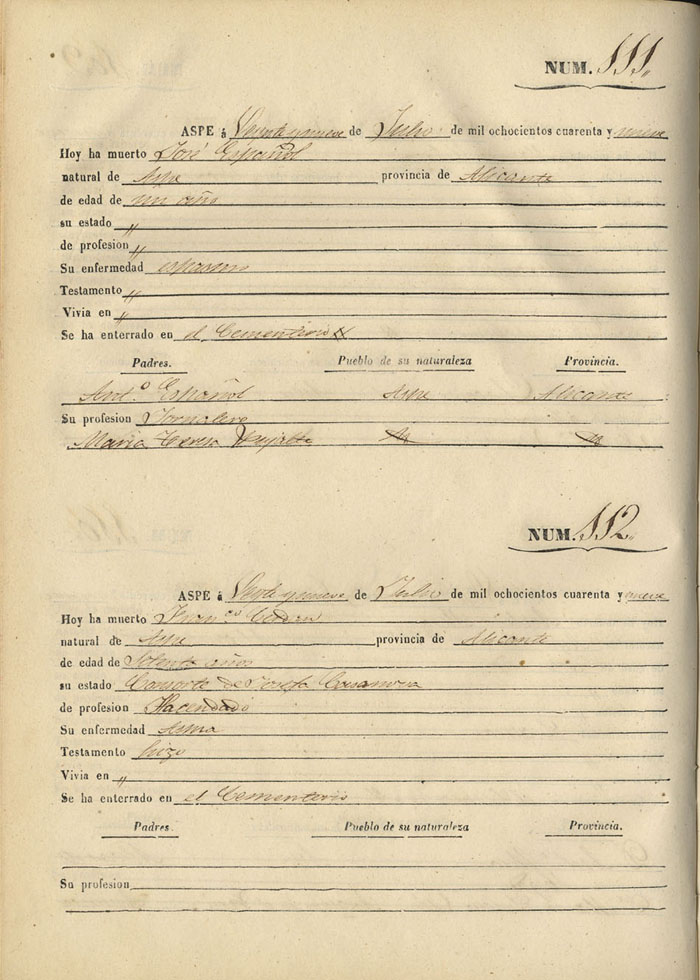 NUM. 111.
ASPE á Veinte y nueve de Julio de mil ochocientos cuarenta y nueve
Hoy ha muerto José Español
natural de Aspe provincia de Alicante
de edad de un año
su estado „
de profesion „
Su enfermedad
Testamento „
Vivia en „
Se ha enterrado en el Cementerio
Padres. Pueblo de su naturaleza Provincia.
Ant.º Español Aspe Alicante
Su profesion Jornalero
Maria Teresa
NUM. 112.
ASPE á Veinte y nueve de Julio de mil ochocientos cuarenta y nueve
Hoy ha muerto Fran.co
natural de Aspe provincia de Alicante
de edad de Setenta años
su estado Consorte de Josefa Casanova
de profesion Hacendado
Su enfermedad Asma
Testamento hizo
Vivia en „
Se ha enterrado en el Cementerio
Padres. Pueblo de su naturaleza Provincia.
Su profesion